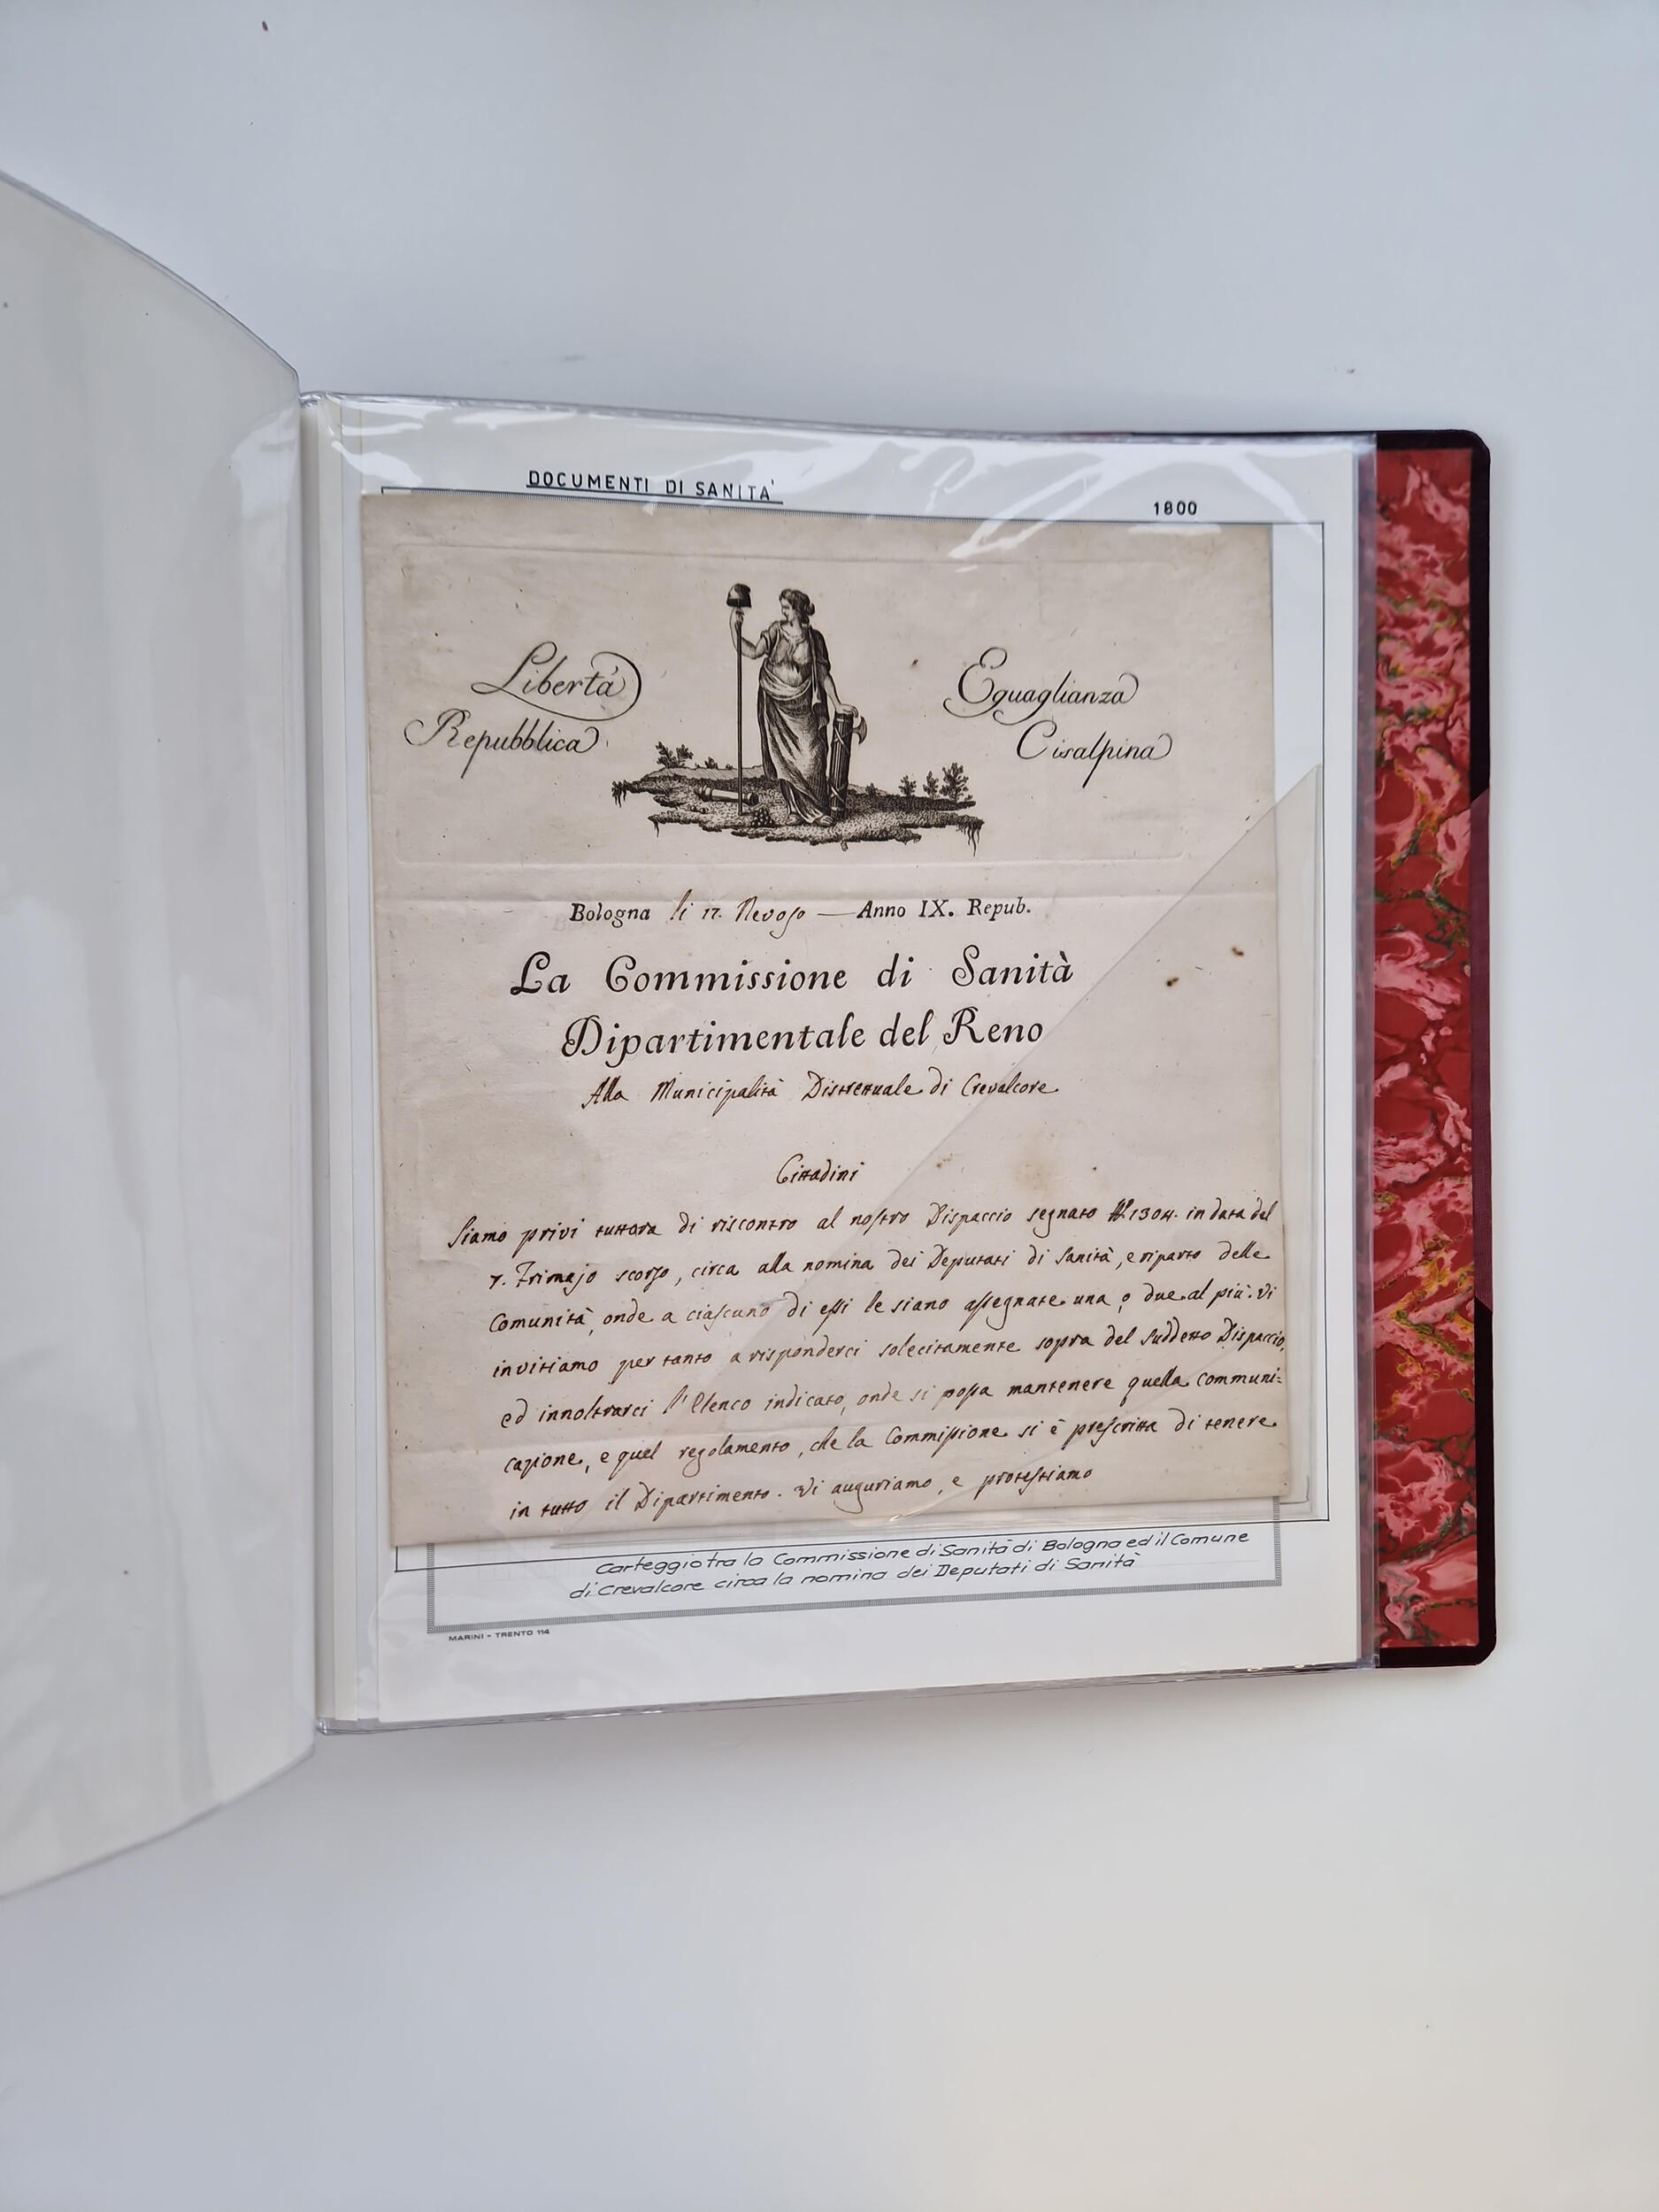 DOCUMENTI DI SANITA'
1800
Libertà Eguaglianza
Repubblica Cisalpina
Bologna li 17. Nevoso — Anno IX. Repub.
La Commissione di Sanità
Dipartimentale del Reno
Alla Municipalità Distrettuale di Crevalcore
Cittadini
Siamo privi tuttora di riscontro al nostro Dispaccio segnato N. 1304. in data del
7. Frimajo scorso, circa alla nomina dei Deputati di Sanità, e riparto delle
Comunità, onde a ciascuno di essi le siano assegnate una, o due al più. Vi
invitiamo per tanto a risponderci solecitamente sopra del suddetto Dispaccio,
ed innoltrarci l'Elenco indicato, onde si possa mantenere quella communi=
cazione, e quel regolamento, che la Commissione si è prescritta di tenere
in tutto il Dipartimento. Vi auguriamo, e protestiamo
Carteggio tra la Commissione di Sanità di Bologna ed il Comune
di Crevalcore circa la nomina dei Deputati di Sanità
MARINI - TRENTO 114